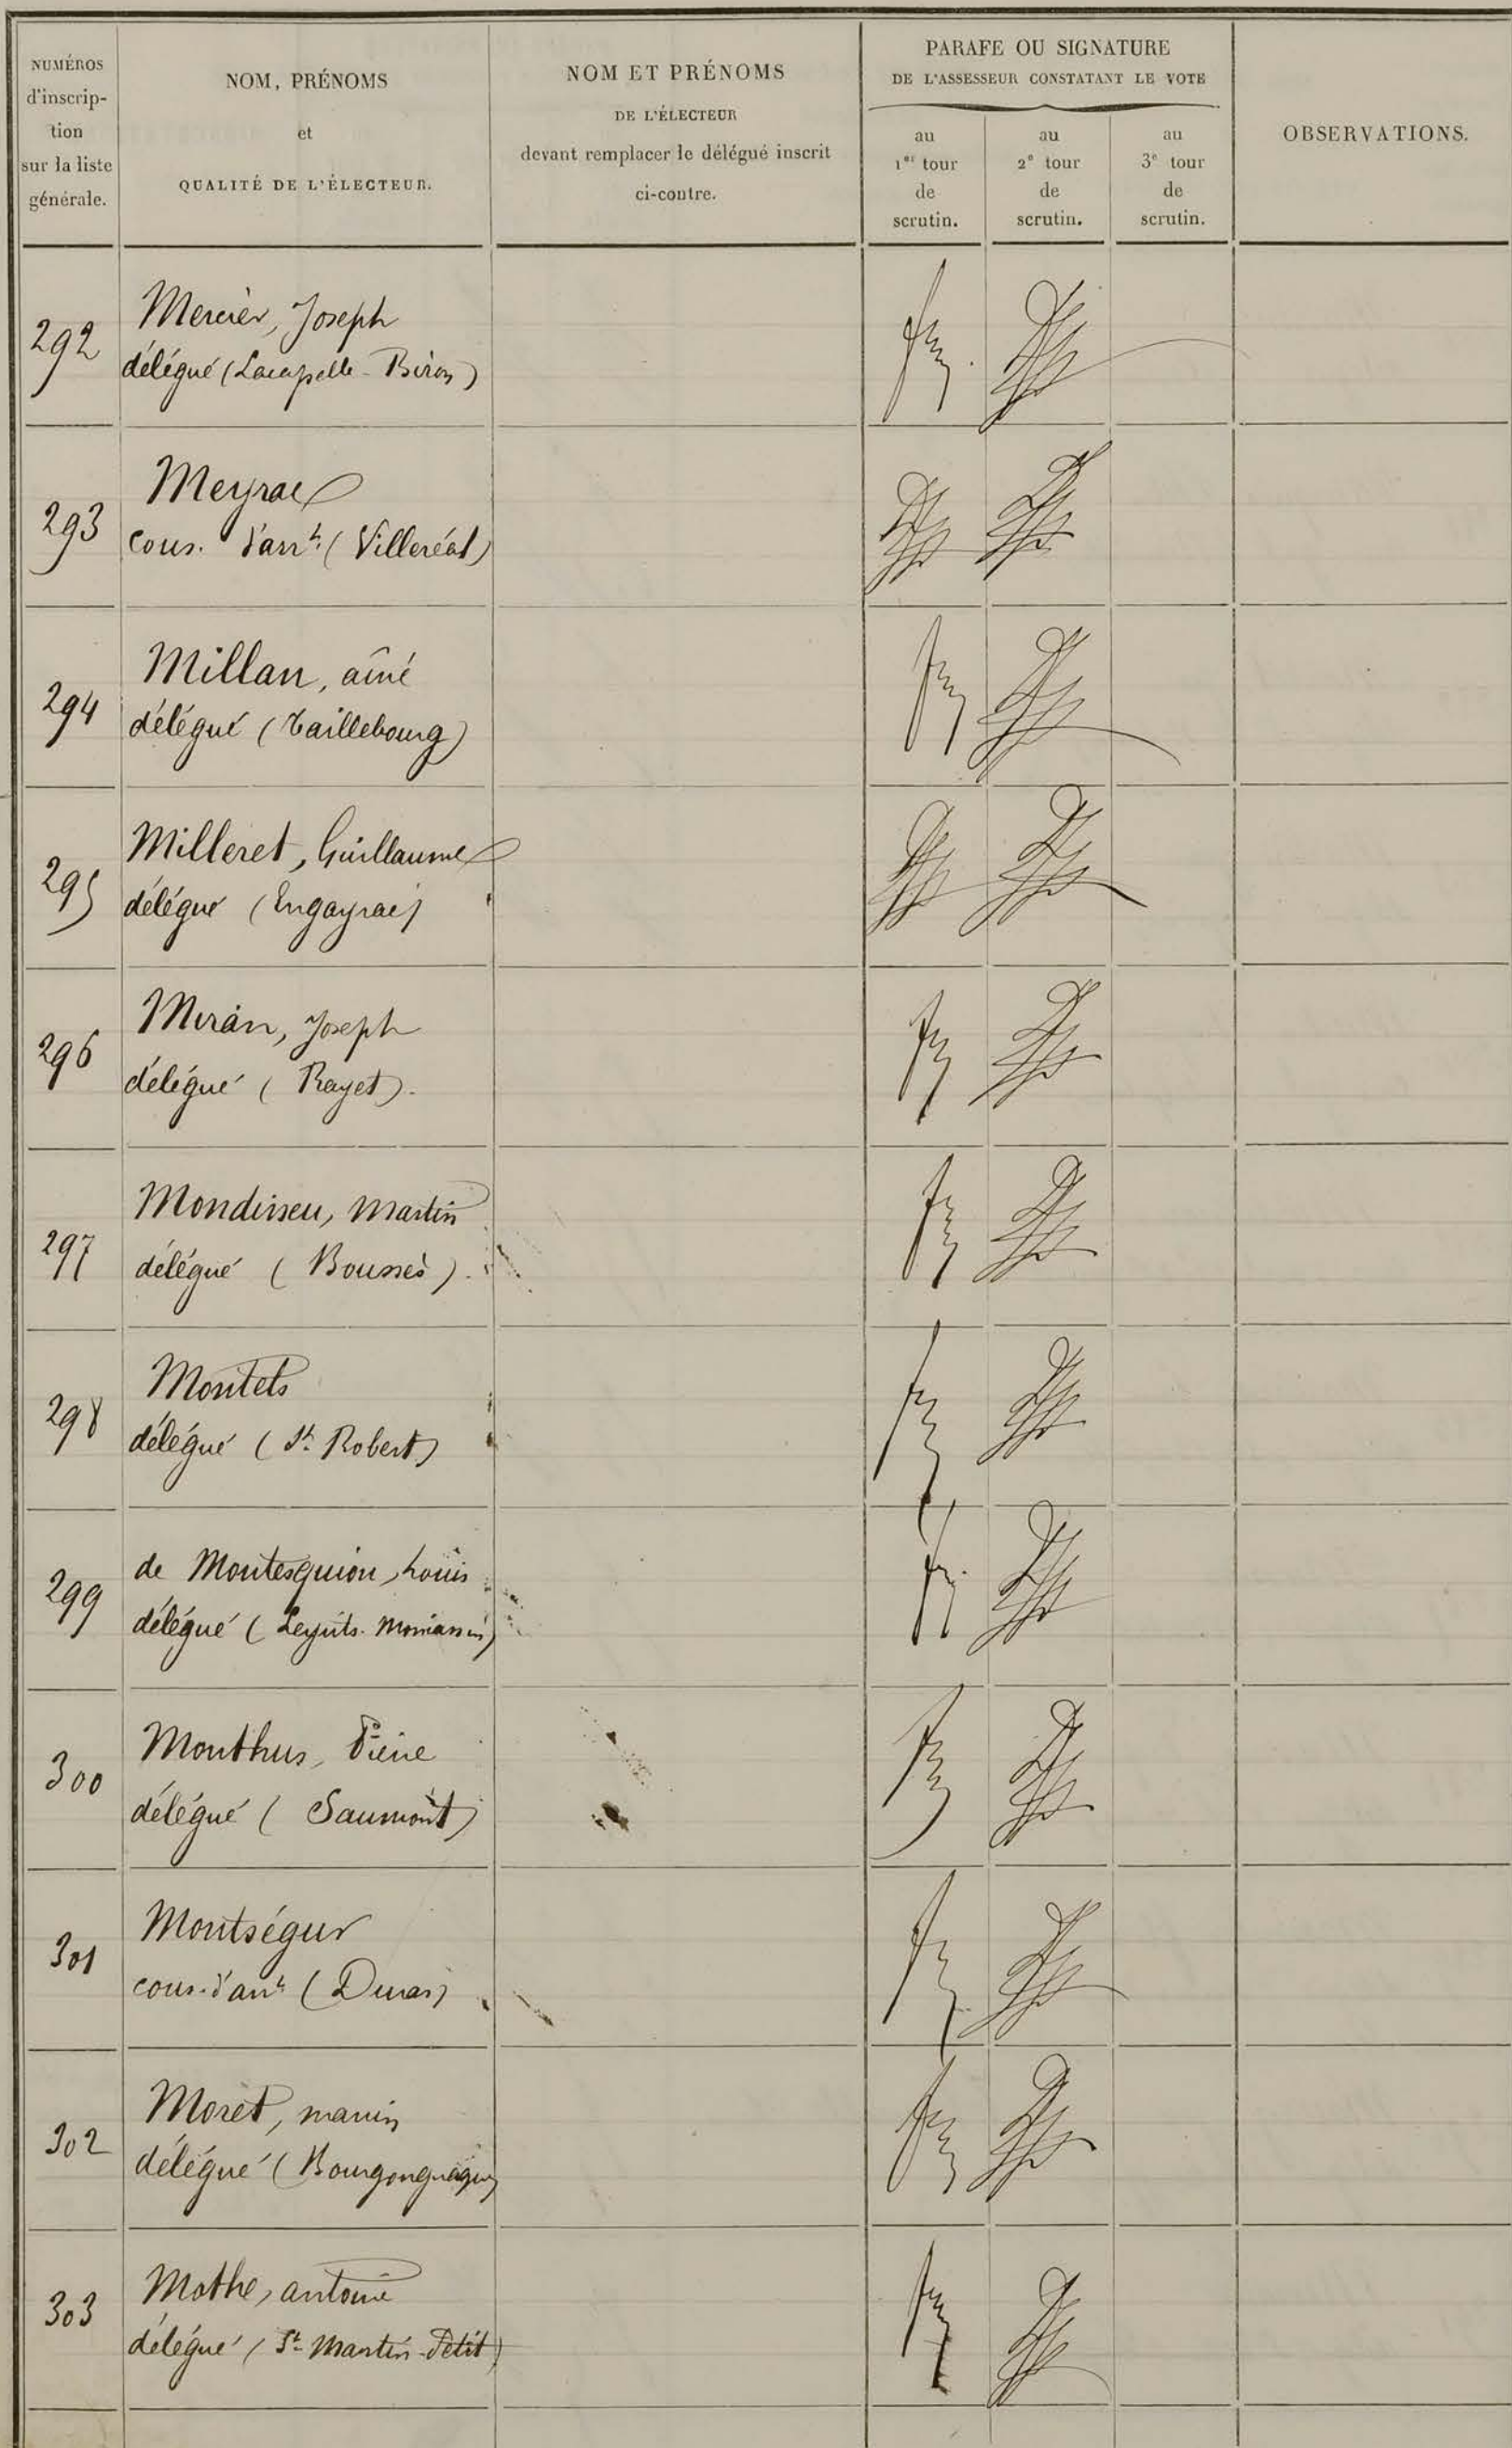 NUMÉROS
d'inscrip-
tion
sur la liste
générale.
NOM, PRÉNOMS
et
QUALITÉ DE L'ÉLECTEUR.
NOM ET PRÉNOMS
DE L'ÉLECTEUR
devant remplacer le délégué inscrit
ci-contre.
PARAFE OU SIGNATURE
DE L'ASSESSEUR CONSTATANT LE VOTE
au
1er tour
de
scrutin.
au
2e tour
de
scrutin.
au
3e tour
de
scrutin.
OBSERVATIONS.
292
Mercier, Joseph
délégué (Lacapelle-Biron)
293
Meyrac
cons. d'arrt. (Villeréal)
294
Millan, aîné
délégué (Taillebourg)
295
Milleret, Guillaume
délégué (Engayrac)
296
Miran, Joseph
délégué (Rayet).
297
Mondineu, Martin
délégué (Boussès).
298
Montels
délégué (St. Robert)
299
de Montesquiou, Louis
délégué (Leyrits-Moncassin)
300
Monthus, Pierre
délégué (Saumont)
301
Montségur
cons. d'arrt (Duras)
302
Moret,
délégué (Bourgougnague)
303
Mothe, antoine
délégué (St. Martin-Petit)